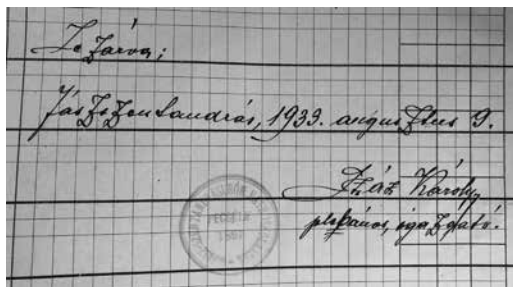 Lezárva;
Jászszentandrás, 1939. augusztus 9.
Száz Károly
plébános, igazgató.